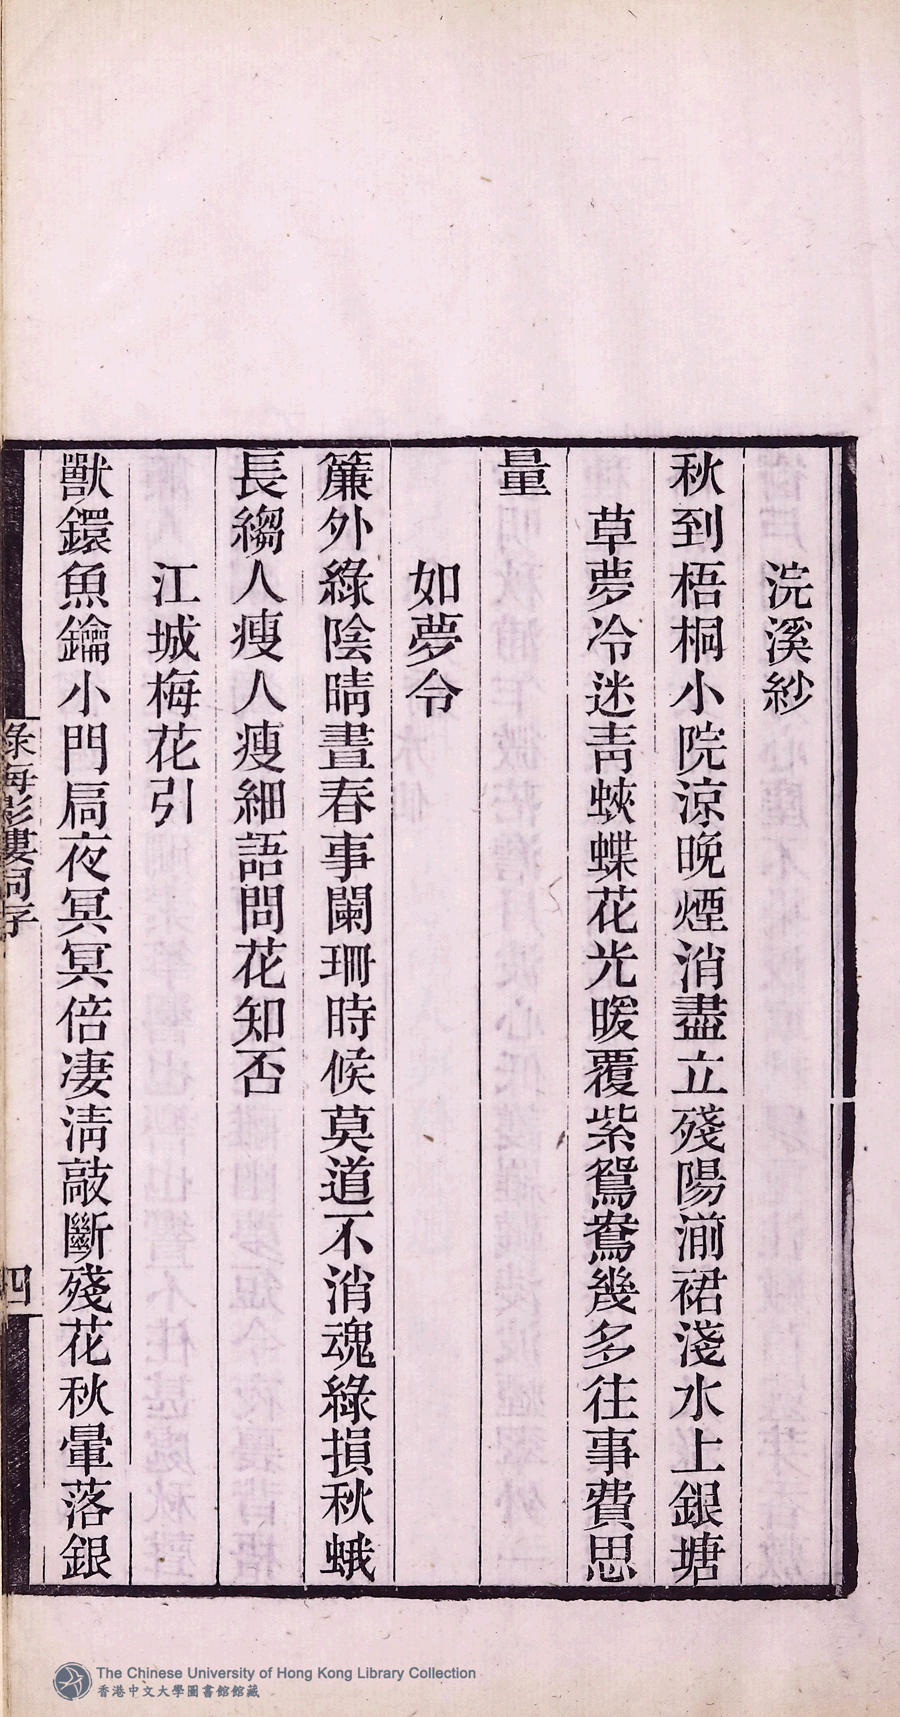 浣溪紗
秋到梧桐小院涼晚煙消盡立殘陽湔裙淺水上銀塘
草夢冷迷靑蛺蝶花光暖覆紫鴛鴦幾多往事費思
量
如夢令
簾外綠陰晴晝春事闌珊時候莫道不消魂綠損秋蛾
長縐人瘦人瘦細語問花知否
江城梅花引
獸鐶魚鑰小門扃夜冥冥倍凄淸敲斷殘花秋暈落銀
四
The Chinese University of Hong Kong Library Collection
香港中文大學圖書館館藏